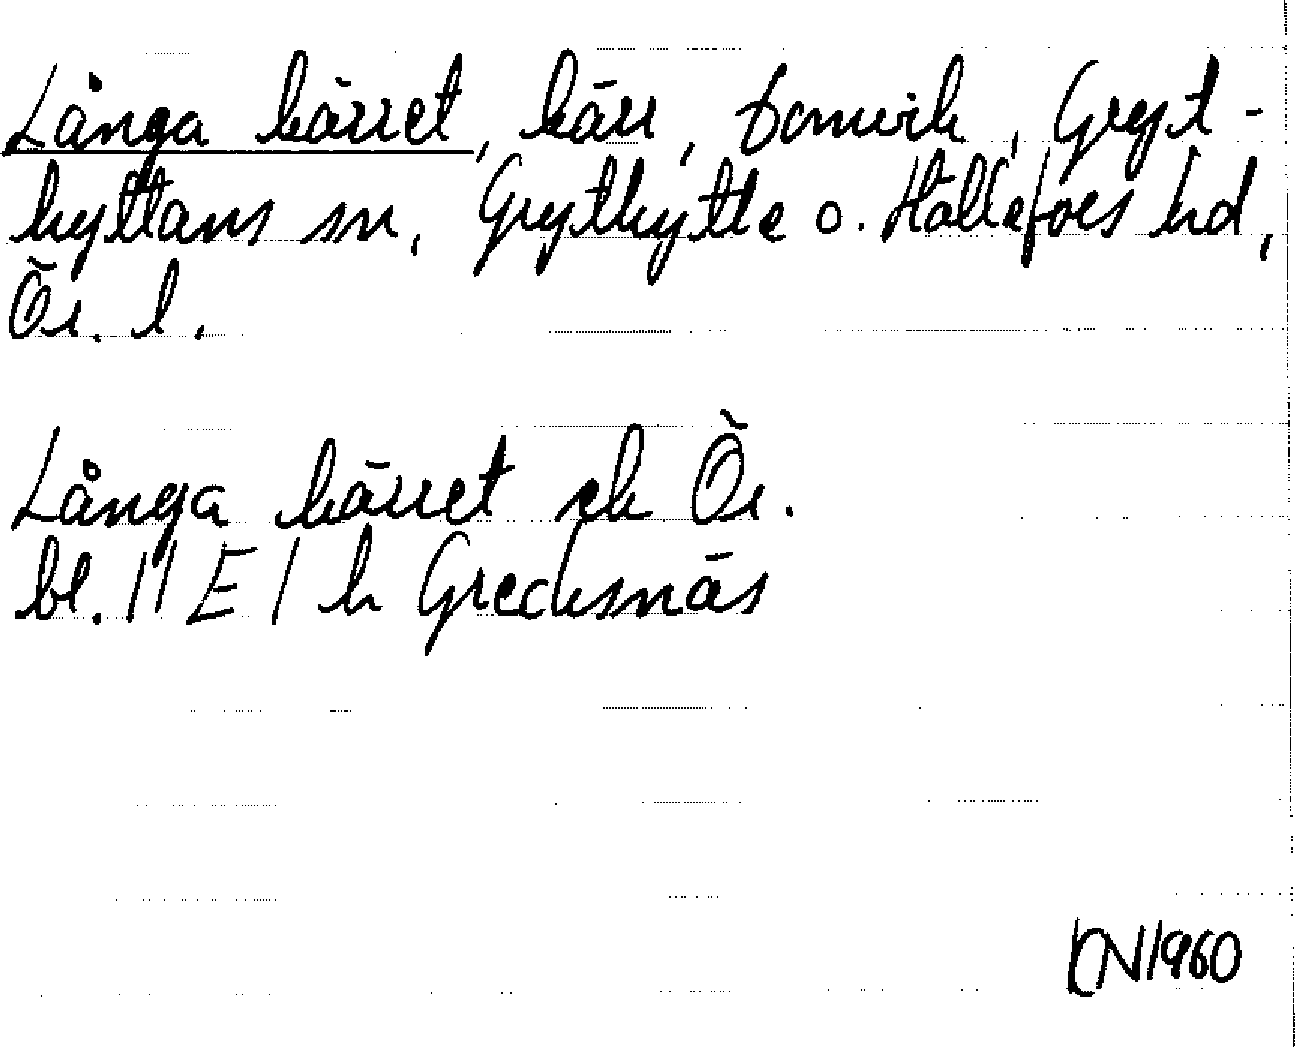 Långa kärret, kärr, Bomvik, Gryt-
hyttans sn, Grythytte o. Hällefors hd,
Ör. l.
Långa kärret ek Ör.
bl. 11 E 1 h Grecksnäs
CN 1960